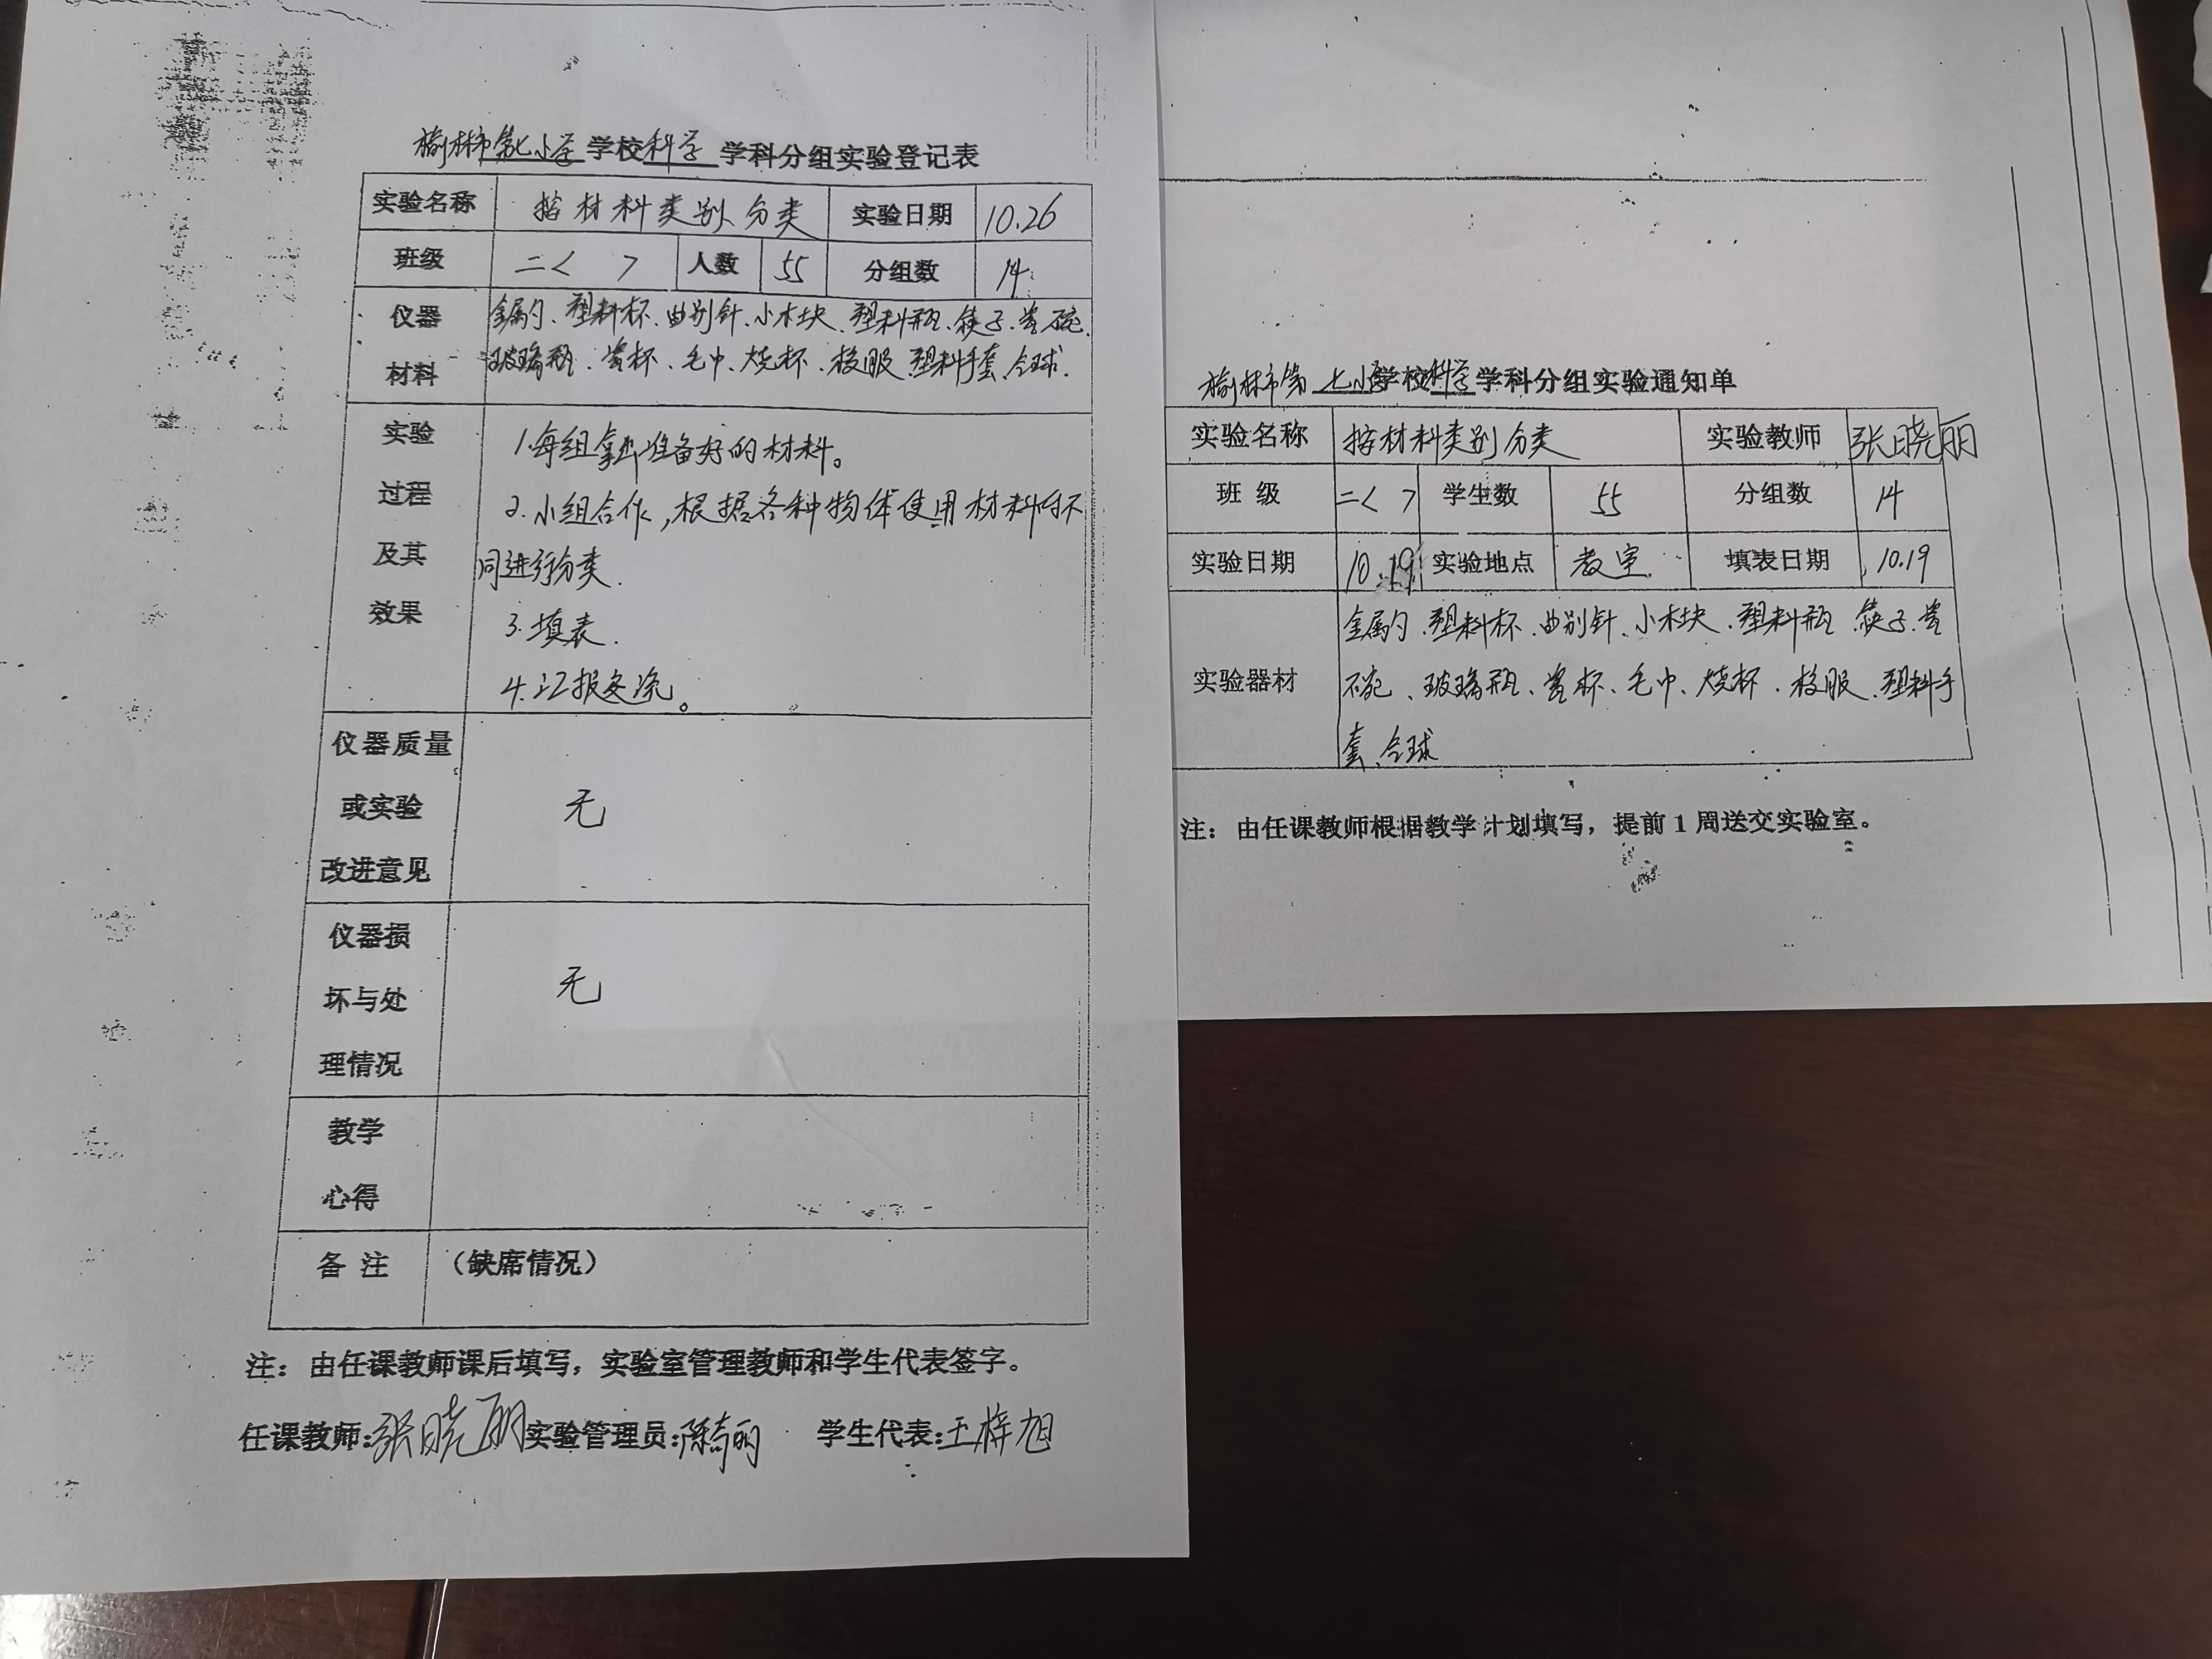 榆林市第七小学 学校 科学 学科分组实验登记表
实验名称 按材料类别分类 实验日期 10.26
班级 二< > 人数 55 分组数 14
仪器 金属勺、塑料杯、曲别针、小木块、塑料瓶、筷子、瓷碗、
材料 玻璃瓶、瓷杯、毛巾、烧杯、校服、塑料手套、台球.
实验 1.每组拿出准备好的材料。
过程 2.小组合作,根据各种物体使用材料的不
及其 同进行分类.
效果 3.填表.
4.汇报交流。
仪器质量
或实验 无
改进意见
仪器损
坏与处 无
理情况
教学
心得
备注 (缺席情况)
注:由任课教师课后填写,实验室管理教师和学生代表签字。
任课教师:张晓丽 实验管理员:陈奇丽 学生代表:王梓旭
榆林市第七小学 学校 科学 学科分组实验通知单
实验名称 按材料类别分类 实验教师 张晓丽
班 级 二< > 学生数 55 分组数 14
实验日期 10.19 实验地点 教室. 填表日期 10.19
金属勺、塑料杯、曲别针、小木块、塑料瓶、筷子、瓷
实验器材 碗、玻璃瓶、瓷杯、毛巾、烧杯、校服、塑料手
套、台球
注:由任课教师根据教学计划填写,提前1周送交实验室。